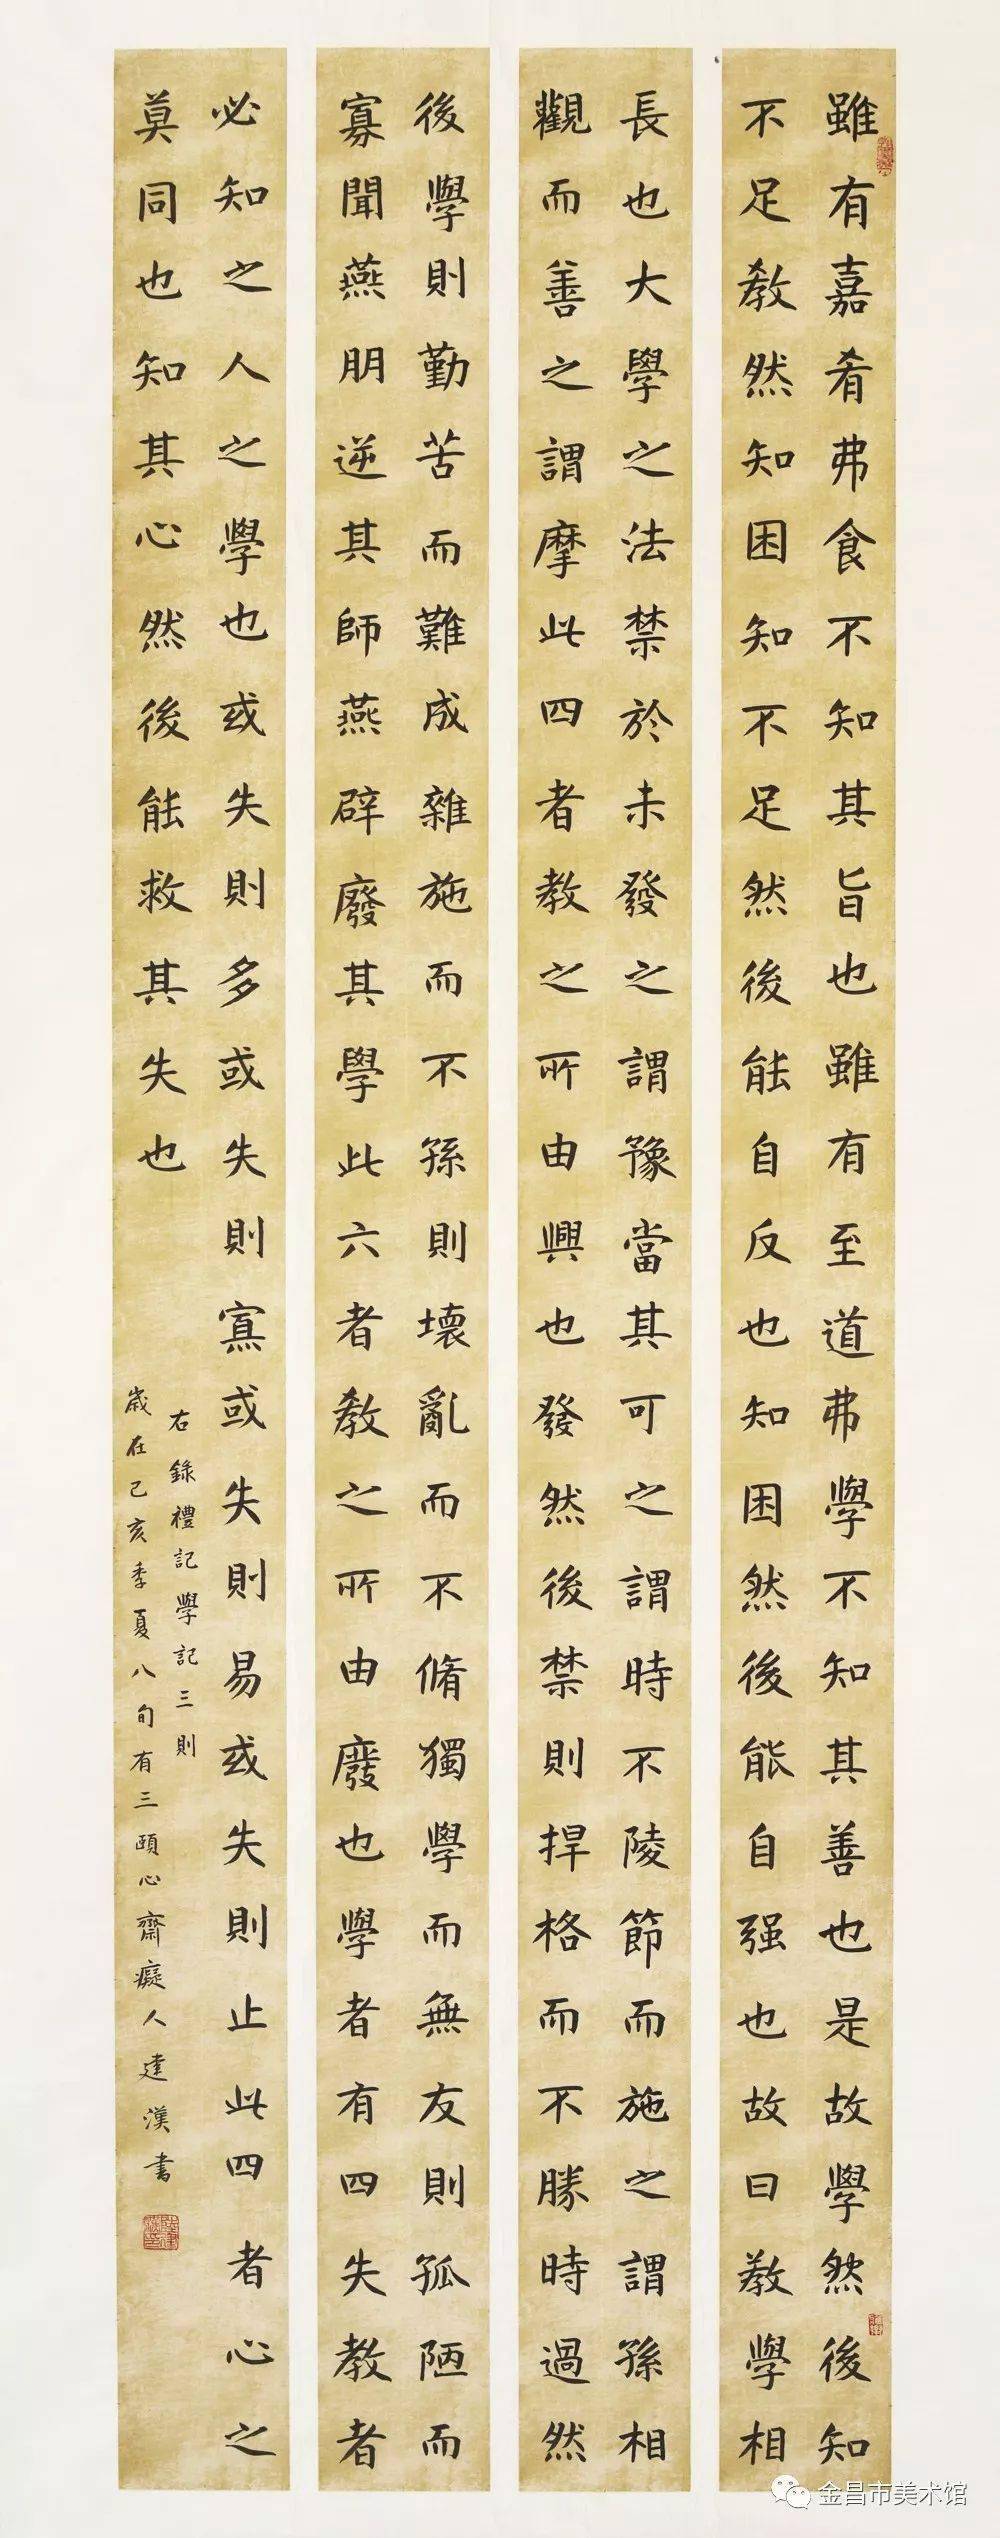 雖有嘉肴弗食不知其旨也雖有至道弗學不知其善也是故學然後知
不足教然知困知不足然後能自反也知困然後能自强也故曰教學相
長也大學之法禁於未發之謂豫當其可之謂時不陵節而施之謂孫相
觀而善之謂摩此四者教之所由興也發然後禁則捍格而不勝時過然
後學則勤苦而難成雜施而不孫則壞亂而不脩獨學而無友則孤陋而
寡聞燕朋逆其師燕辟廢其學此六者教之所由廢也學者有四失教者
必知之人之學也或失則多或失則寡或失則易或失則止此四者心之
莫同也知其心然後能救其失也
右錄禮記學記三則
歲在己亥季夏八旬有三頤心齋癡人建漢書
金昌市美术馆